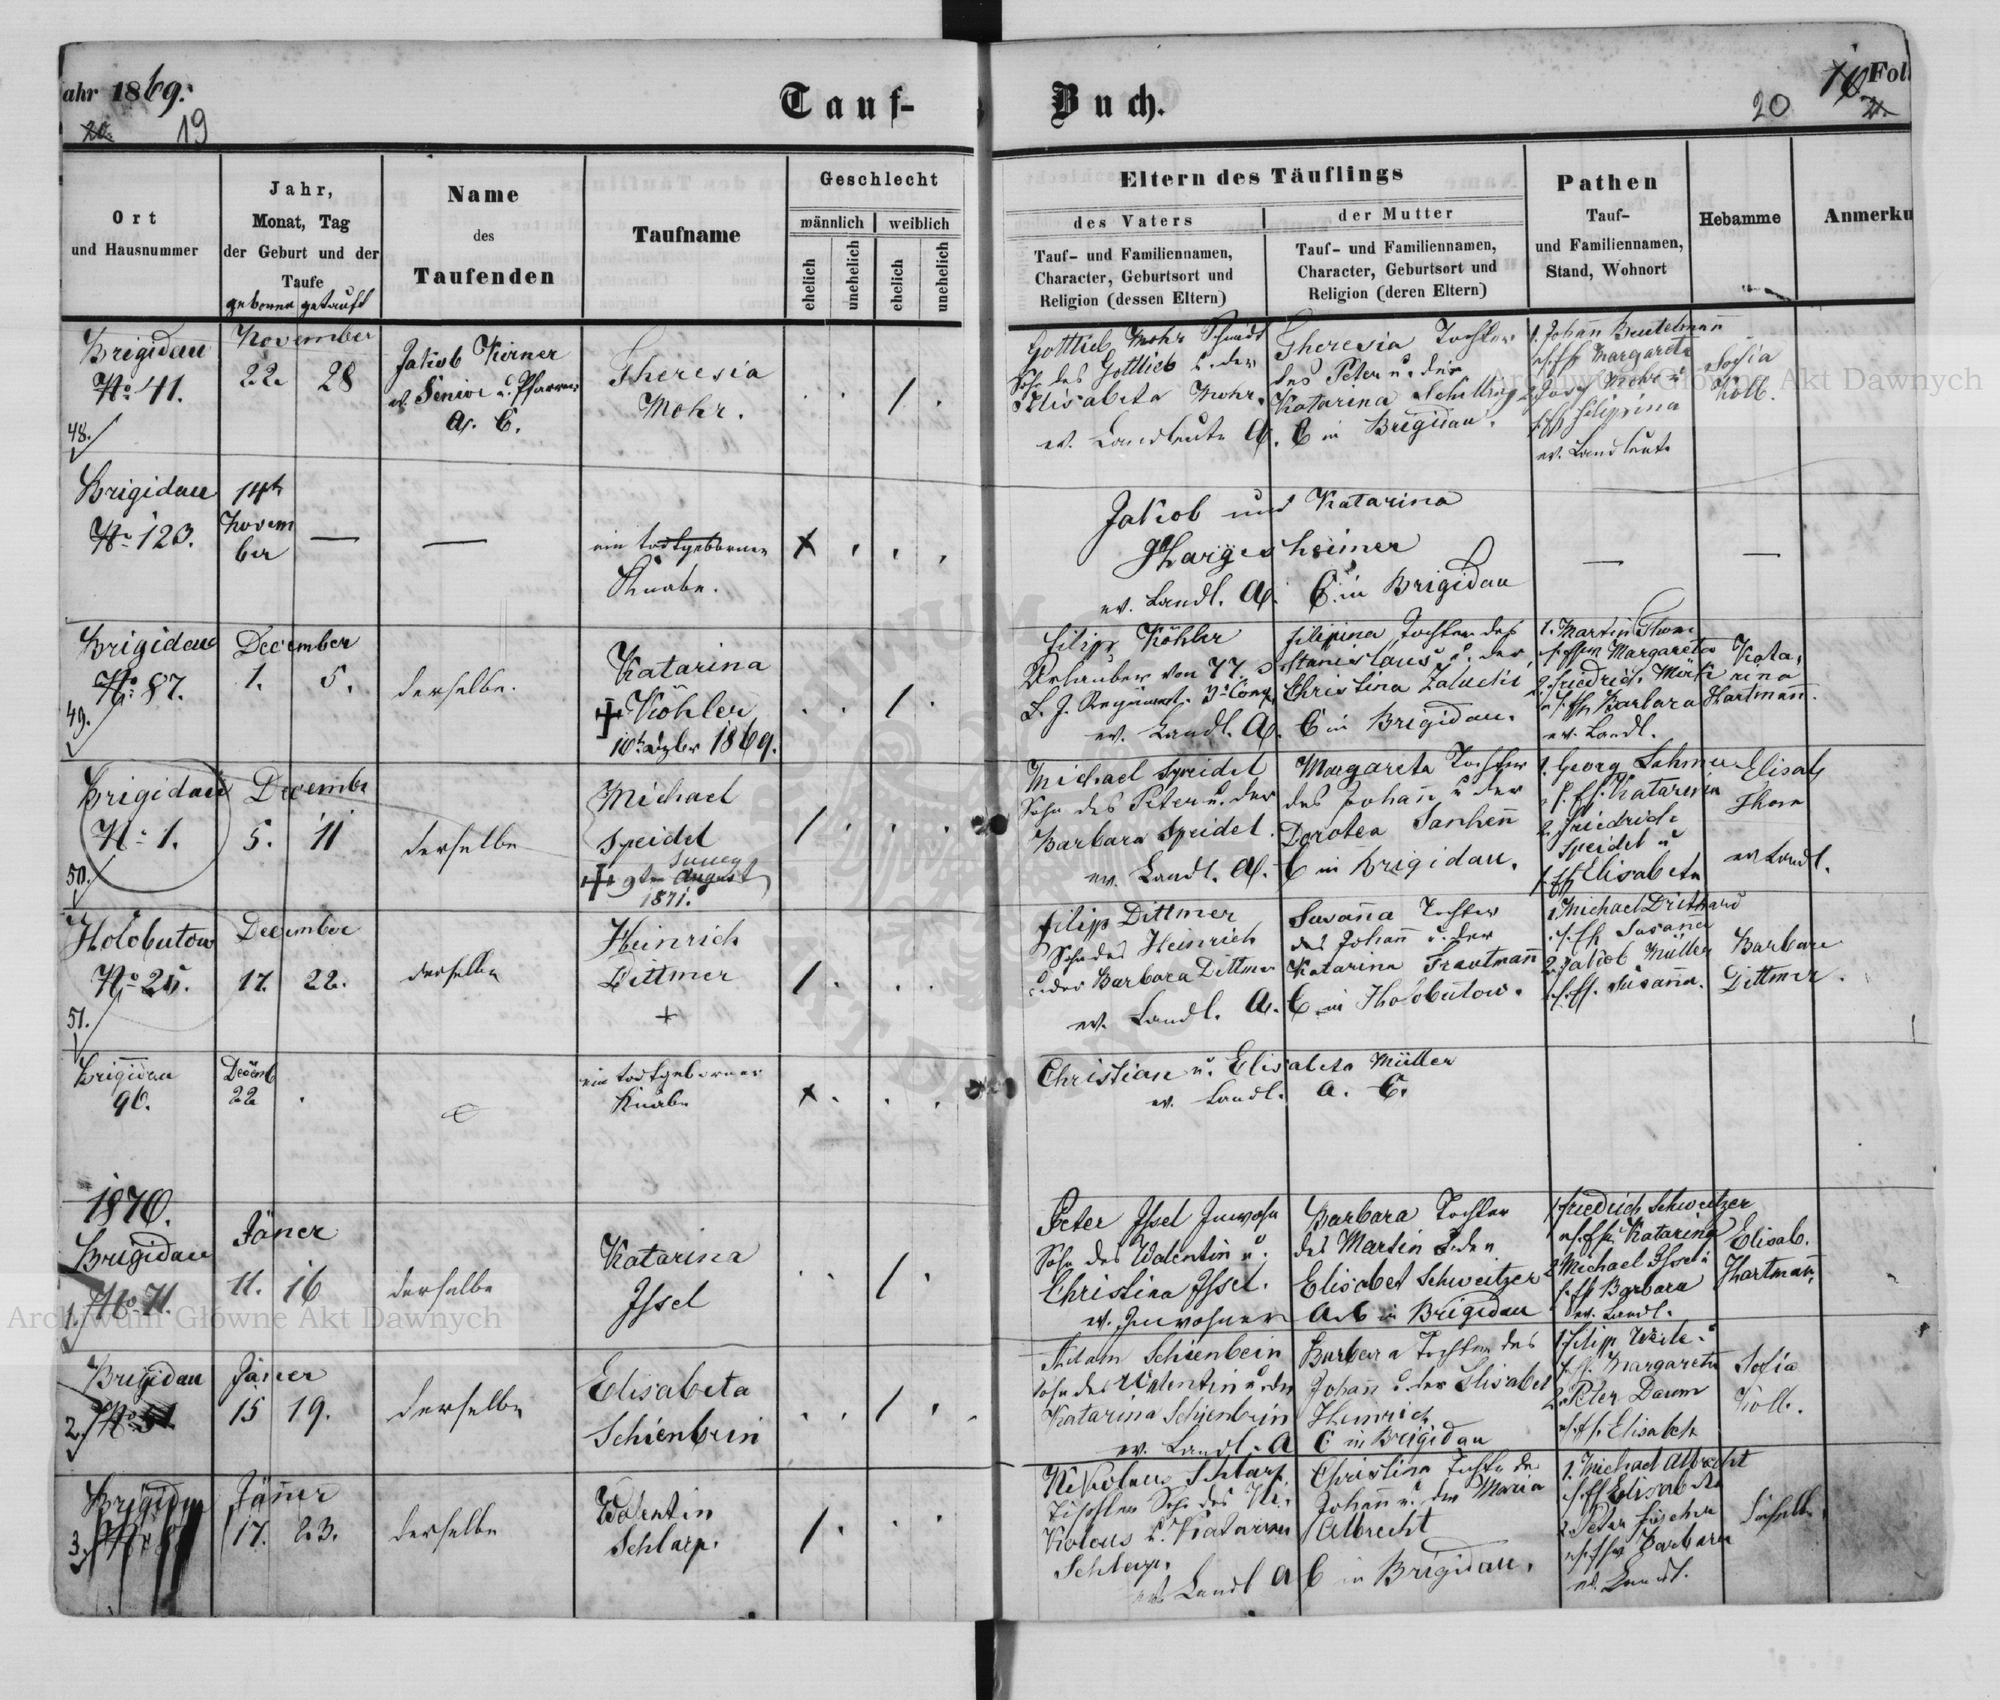 ahr 1869.
Tauf-
Buch.
Fol
19
20
Ort
und Hausnummer
Jahr,
Monat, Tag
der Geburt und der
Taufe
geboren getauft
Name
des
Taufenden
Taufname
Geschlecht
männlich
weiblich
ehelich
unehelich
ehelich
unehelich
Eltern des Täuflings
des Vaters
der Mutter
Tauf- und Familiennamen,
Character, Geburtsort und
Religion (dessen Eltern)
Tauf- und Familiennamen,
Character, Geburtsort und
Religion (deren Eltern)
Pathen
Tauf-
und Familiennamen,
Stand, Wohnort
Hebamme
Anmerku
Brigidau
No 41.
48.
November
22. 28
Jakob Körner
ev. Senior u. Pfarrer
A. C.
Theresia
Mohr.
Gottlieb Mohr
Sohn des Gottlieb u. der
Elisabeta Mohr.
ev. Landleute A. C. in Brigidau.
Theresia Tochter
des Peter u. der
Katarina Schilling
1. Johann Beutelmann
Margareta
2. Josef Mohr u
Filippina
ev. Landleute
Sofia
Koll.
Brigidau
No 123.
14th
Novem
ber
— —
ein todtgeborner
Knabe.
Jakob und Katarina
Hargesheimer
ev. Landl. A. C. in Brigidau
— —
Brigidau
No. 87.
49.
December
1. 5.
derselbe.
Katarina
Köhler
10ten 1869.
Filipp Köhler
Urlauber von 77.
ev. Landl. A. C. in Brigidau.
Filipina Tochter des
Stanislaus u. der
Christina Zaluchi
1. Martin Thom
Margareta
2. Friedrich
Barbara
ev. Landl.
Kata,
rina
Hartmann.
Brigidau
No 1.
50.
December
5. 11
derselbe
Michael
Speidel
9ten August
1871.
Michael Speidel
Sohn des Peter u. der
Barbara Speidel.
ev. Landl. A. C. in Brigidau.
Margareta Tochter
des Johann u der
Dorotea
1. Georg
Katarina
2. Friedrich
Speidel u
Elisabeta
Elisab
Thom
ev Landl.
Holobutow
No 25.
51.
December
17. 22.
derselbe
Heinrich
Dittmer
Filipp Dittmer
Sohn des Heinrich
u. der Barbara Dittmer
ev. Landl. A. C. in Holobutow.
Susanna Tochter
des Johann u. der
Katarina Trautmann
1. Michael
Susanna
2. Jakob Müller
Susanna.
Barbara
Dittmer.
Brigidau
96.
Decemb
22
ein todtgeborner
Knabe
Christian u. Elisabeta Müller
ev. Landl. A. C.
1870.
Brigidau
No. 71.
1.
Jäner
11. 16
derselbe
Katarina
Issel
Peter Issel Inwohn
Sohn des Walentin u.
Christina Issel.
ev. Inwohner A. C. in Brigidau
Barbara Tochter
des Martin u. der
Elisabet Schweitzer
1. Friedrich Schweitzer
Katarina
2. Michael Issel u
Barbara
ev. Landl.
Elisab.
Hartmann,
Brigidau
2.
Jäner
15 19.
derselbe
Elisabeta
Schienbein
Adam Schienbein
Sohn des Walentin u. der
Katarina Schienbein
ev. Landl. A C in Brigidau
Barbara Tochter des
Johann u. der Elisabet
Heinrich
1. Filipp
Margareta
2. Peter Daum
Elisabeta
Sofia
Koll.
Brigidau
3.
Jäner
17. 23.
derselbe
Walentin
Schlarp.
Nikolaus Schlarp,
Tischler Sohn des Ni,
kolaus u. Katarina
Schlarp.
ev. Landl A C in Brigidau.
Christina Tochter des
Johann u. der Maria
Albrecht
1. Michael Albrecht
Elisabeta
2. Peter Fischer
Barbara
ev. Landl.
Dieselbe.
Archiwum Główne Akt Dawnych
Archiwum Główne Akt Dawnych